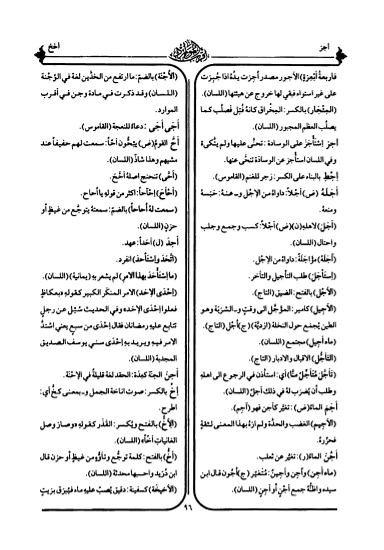 أجز
أخخ
فأربعة أبعِرَةٍ) الأجور مصدر أُجِرَت يدُهُ اذا جُبِرَت
على غير استواء فبقي لها خروج عن هيئتها (اللسان).
(المِئجار) بالكسر: المِخراق كانهُ فُتِل فصلُب كما
يصلُب العظم المجبور (اللسان).
أجز اِستَأجَزَ على الوسادة: تحنّى عليها ولم يتكِىء
وفي اللسان استأجز عن الوسادة تنحّى عنها.
إِجْطِ بالبناء على الكسر: زجر للغنم (القاموس).
أجَلَهُ (ض) أجْلاً: داواهُ من الإجْل و–عنهُ: حَبَسهُ
ومنعهُ.
(أجَلَ) لاهلهِ(ن)(ض) أجْلاً: كسب وجمع وجلب
واحتال (اللسان).
(آجَلَهُ) مؤاجَلةً: داواهُ من الإجْل.
(اِستَأجَلَ) طلب التأجيل والتأخر.
(الأجْل) بالفتح: الضيق (التاج).
(الأجِيل) كامير: المؤجَّل الى وقتٍ و–الشَرَبَة وهو
الطين يُجمع حول النخلة (ازديّة) (ج) أُجُل (التاج).
(ماء أجِيل) مجتمع (اللسان).
(التَأجُّل) الاقبال والادبار (التاج).
(تَأجَّلَ مُتَأجِّلٌ منَّا) أي: استأذن في الرجوع الى اهلهِ
وطلب أن يُضرَب لهُ في ذلك أجَلٌ (اللسان).
أجَمَ الماءُ (ض): تغيَّر كأجن فهو (آجِم).
(الأجِيم) الغضب والحدَّة ولم ارَهُ بهذا المعنى لثقةٍ
فحرِّرهُ.
أجُنَ الماءُ(ر): تغيَّر عن ثعلب.
(ماء أجِن) وأجْن وأجِينٌ: مُتَغيّر (ج) أُجُون قال ابن
سيده واظنُّهُ جمع أجْن أو أجِن (اللسان).
(الأُجْنَة) بالضمّ: ما ارتفع من الخدَّين لغة في الوُجْنة
(اللسان) وقد ذكرت في مادة وجن في أقرب
الموارد.
أجَى أجَى : دعاء للنعجة (القاموس).
أحَّ القومُ(ض) يَئِحُّون أحّاً: سمعت لهم حفيفاً عند
مشيهم وهذا شاذٌّ (اللسان).
(أحَّى) تنحنح اصلهُ أحَّحَ.
(أحأحَ) إِحْئاحاً: اكثر من قوله يا أُحاح.
(سمعت لهُ أُحاحاً) بالضم: سمعتهُ يتوجّع من غيظٍ أو
حزنٍ (اللسان).
أحِدَ (ل) أحَداً: عهد.
(اتَّحَدَ واِستَأحَدَ) انفرد.
(ما اِستَأحَدَ بهذا الامرِ) لم يشعر بهِ (يمانية) (اللسان).
(إِحدَى الإِحَد) الامر المنكَر الكبير كقولهِ «بعكاظٍ
فعلوا إِحدَى الإِحَدِ» وفي الحديث سُئل عن رجلٍ
تتابع عليهِ رمضانان فقال إِحدَى من سبع يعني اشتدَّ
الامر فيهِ ويريد بهِ إِحدَى سني يوسف الصديق
المجدبة (اللسان).
أحِنَ الجنة كِيدَة: الحقد لغة قليلة في الإِحْنة.
إِخْ بالكسر: صوت اناخة الجمل و–بمعنى كَخْ أي:
اطرح.
(الأَخّ) بالفتح ويُكسر: القذر كقولهِ «وصار وصل
الغانياتِ أَخّاه» (اللسان).
(أَخّ) بالفتح: كلمة توجُّع وتأوُّهٍ من غيظٍ أو حزن قال
ابن دُرَيد واحسبها محدثة (اللسان).
(الأَخِيخَة) كسفينة: دقيق يُصبّ عليهِ ماء فيُبْرَق بزيتٍ
٩٦